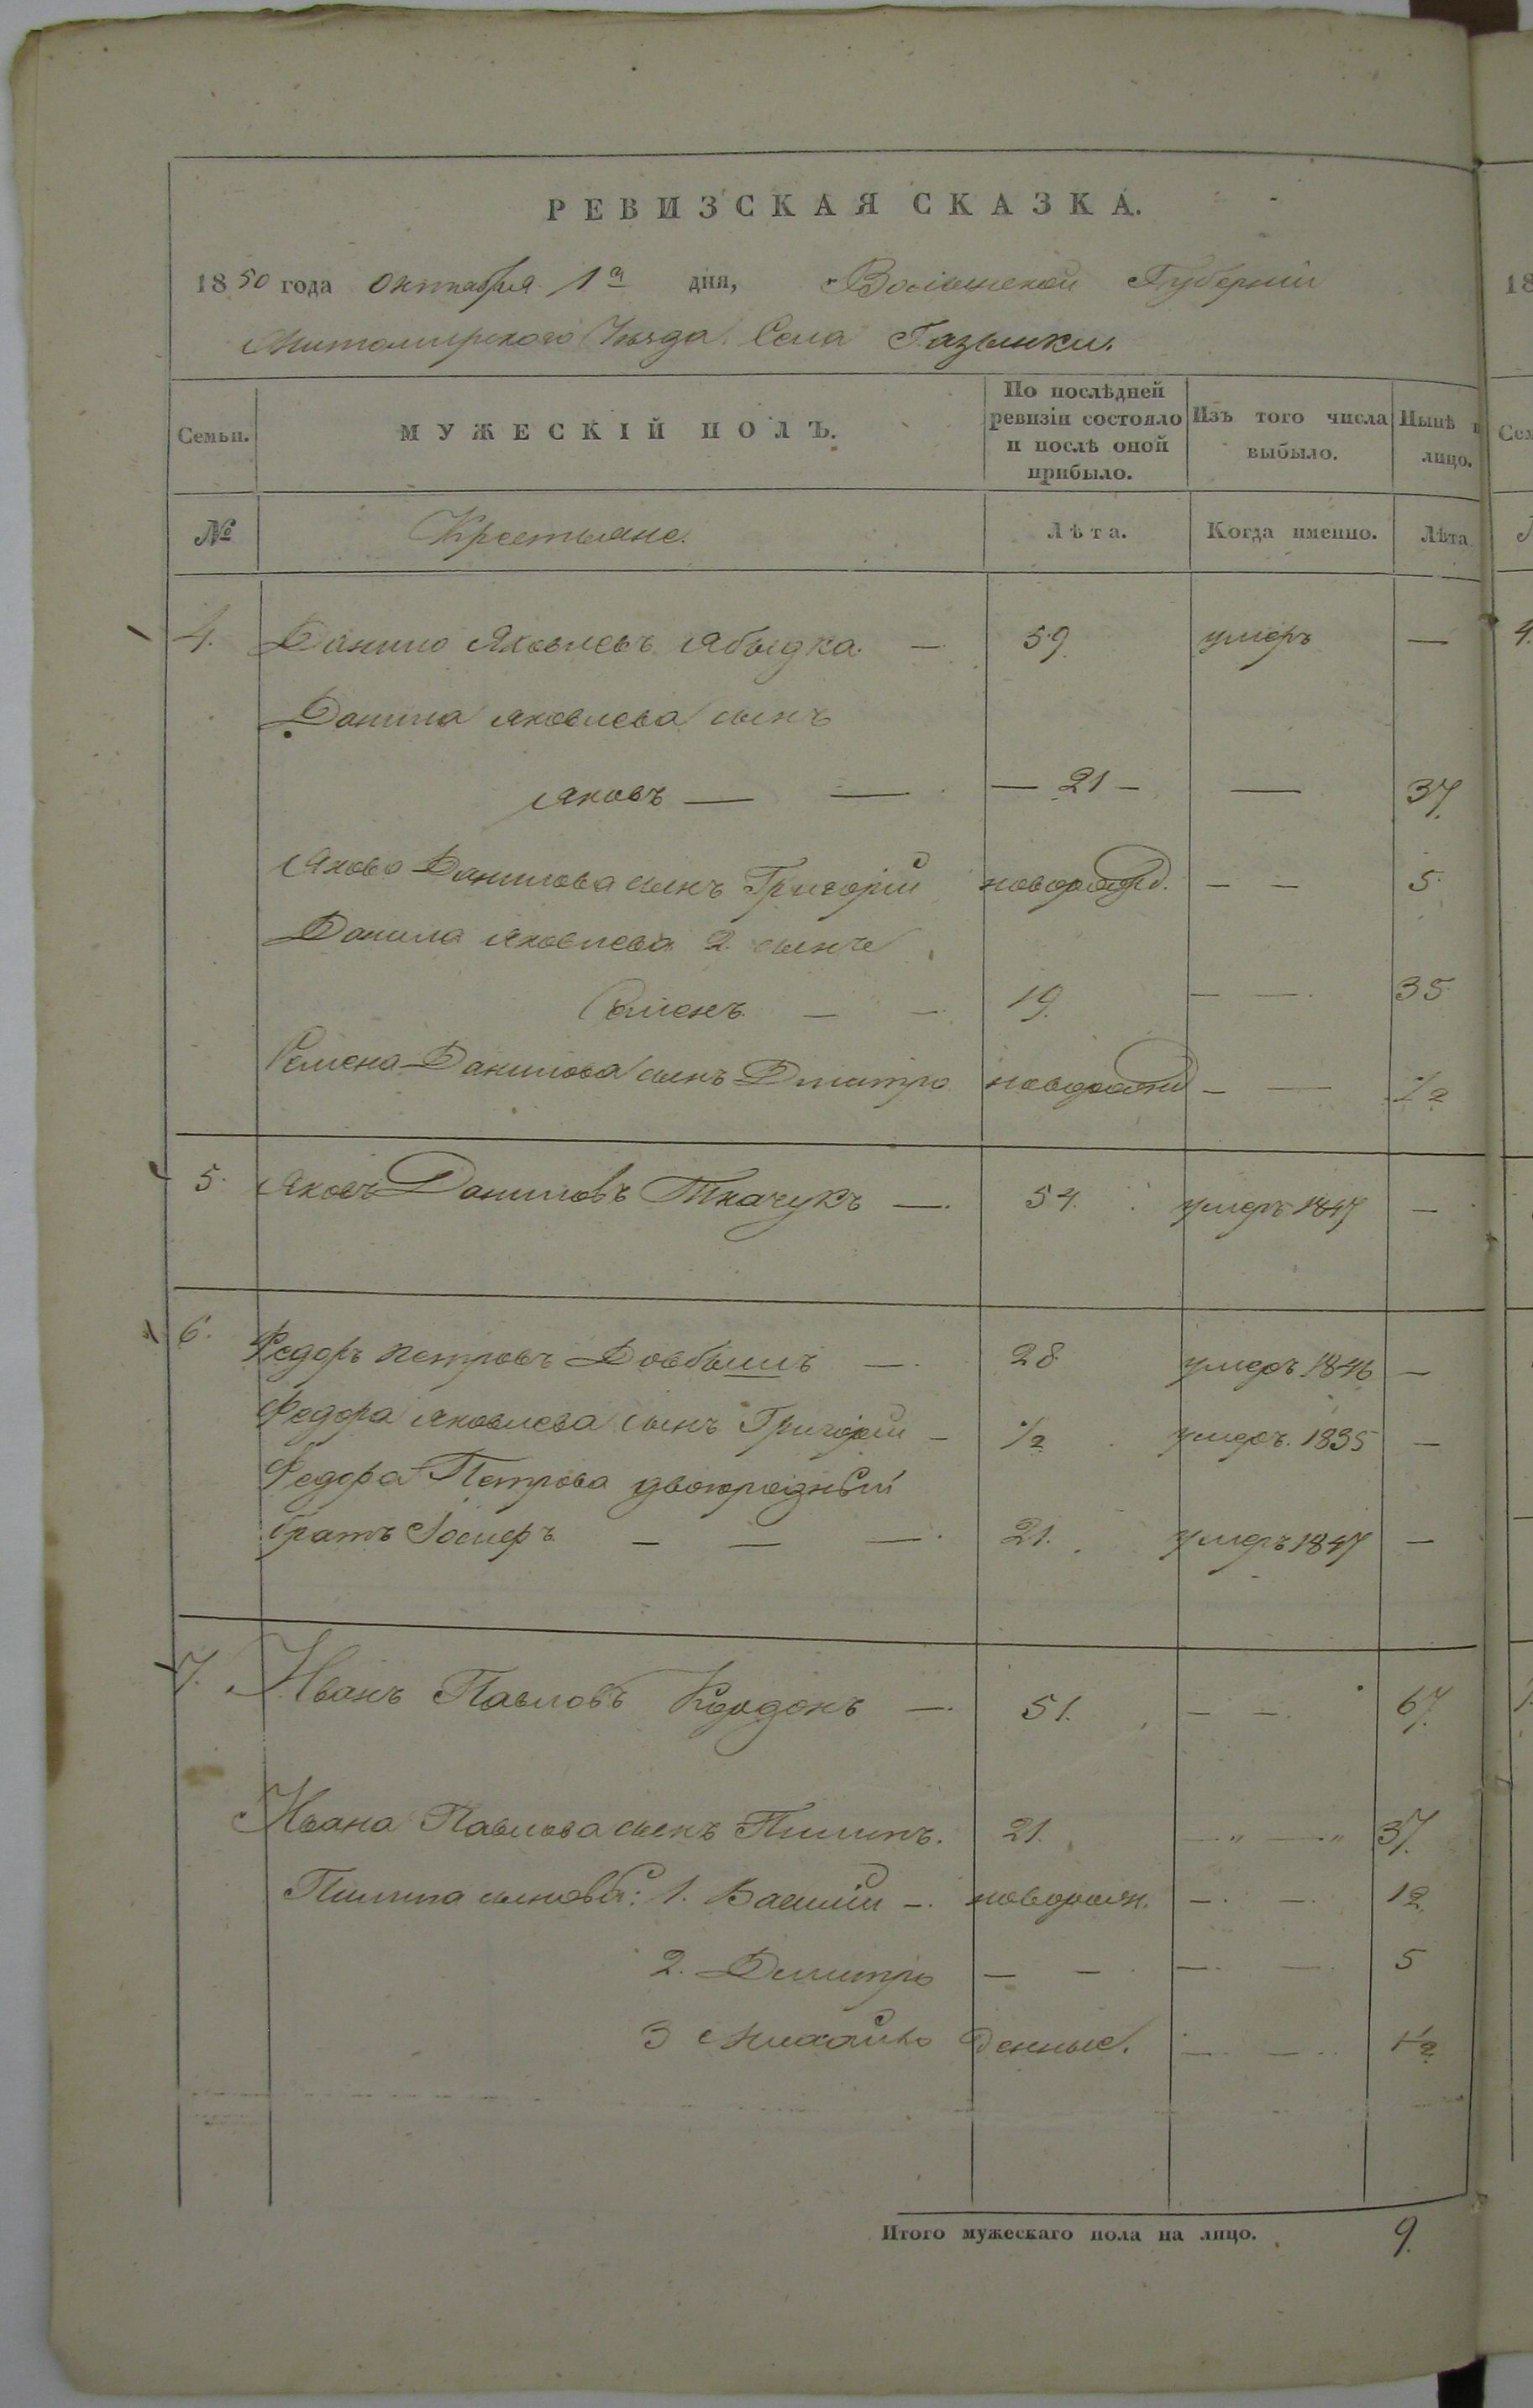 РЕВИЗСКАЯ СКАЗКА.
1850 года Октября 1го дня, Волынской Губернии
Житомирского Уѣзда Села Газынки.
Семьи. МУЖЕСКІЙ ПОЛЪ. По послѣдней ревизіи состояло и послѣ оной прибыло. Изъ того числа выбыло. Нынѣ на лицо.
№ Крестьяне. Лѣта. Когда именно. Лѣта
4. Данило Яковлевъ Ябыдка. — 59. умеръ —
Данила Яковлева сынъ
Яковъ — — — 21 — — 37.
Якова Данилова сынъ Григорій новорожд. — — 5.
Данила Яковлева 2. сынъ
Семенъ. — — 19. — — 35.
Семена Данилова сынъ Дмитро новорожд — — 1/2
5. Яковъ Даниловъ Ткачукъ — 54. умеръ 1847 —
6. Федоръ Петровъ Довбышъ — 28 умеръ 1846 —
Федора Яковлева сынъ Григорій — 1/2 умеръ. 1835 —
Федора Петрова двоюродный
братъ Іосифъ — — — 21. умеръ 1847 —
7. Иванъ Павловъ Кордонъ — 51. — — 67.
Ивана Павлова сынъ Пилипъ. 21. —„ —„ 37.
Пилипа сыновья: 1. Василій — новорож. — — 12.
2. Дмитро — — — — 5
3 Михайло денные. — — 1/2
Итого мужескаго пола на лицо. 9.